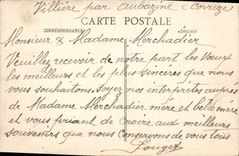 Villière par Aubazine Corrèze
CARTE POSTALE
CORRESPONDANCE
Monsieur & Madame Merchadier
Veuillez recevoir de notre part les Vœux
les meilleurs et les plus sincères que nous
vous souhaitons. Soyez nos interprètes auprès
de Madame Merchadier mère et belle mère
et vous priant de croire aux meilleurs
souvenirs que nous Conservons de vous tous